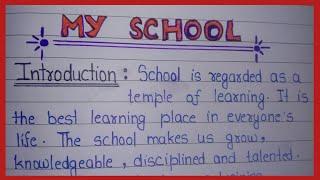 MY SCHOOL
Introduction : School is regarded as a
temple of learning. It is
the best learning place in everyone's
life. The school makes us grow,
knowledgeable, disciplined and talented.